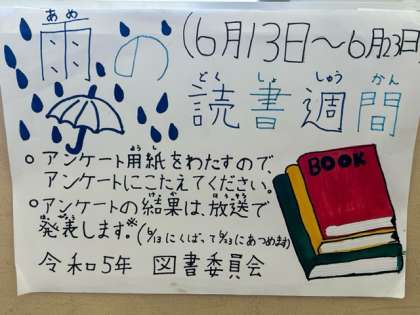 雨の
あめ
(6月13日〜6月23日
読書週間
どくしょしゅうかん
BOOK
○アンケート用紙をわたすので
ようし
アンケートにこたえてください。
○アンケートの結果は、放送で
けっか ほうそう
発表します。※(6/13にくばって6/23にあつめます)
はっぴょう
令和5年 図書委員会